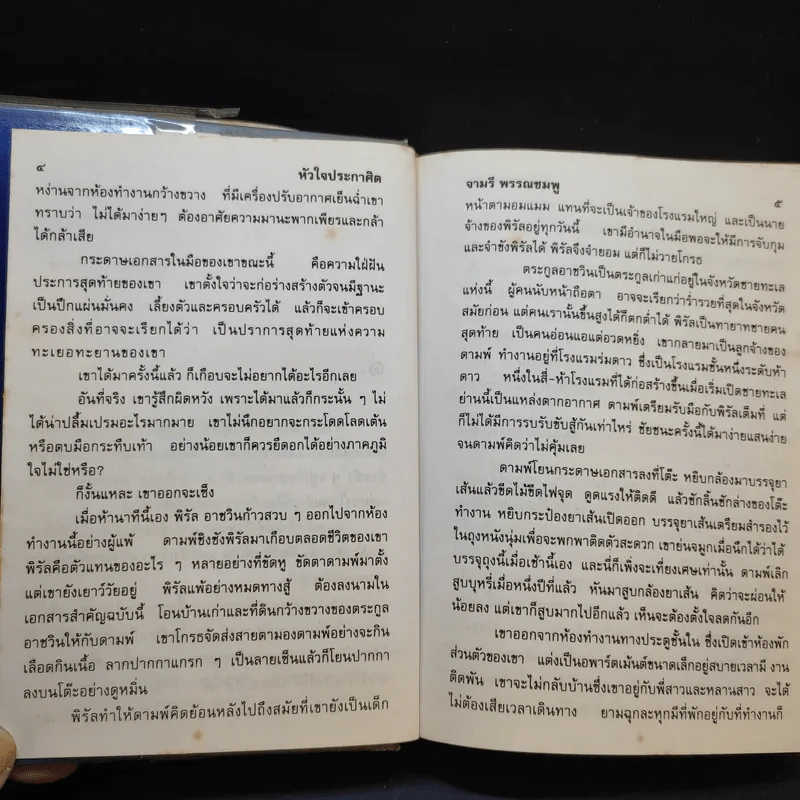 ๔
หัวใจประกาศิต
หง่านจากห้องทำงานกว้างขวาง ที่มีเครื่องปรับอากาศเย็นฉ่ำเขา
ทราบว่า ไม่ได้มาง่ายๆ ต้องอาศัยความมานะพากเพียรและกล้า
ได้กล้าเสีย
กระดาษเอกสารในมือของเขาขณะนี้ คือความใฝ่ฝัน
ประการสุดท้ายของเขา เขาตั้งใจว่าจะก่อร่างสร้างตัวจนมีฐานะ
เป็นปึกแผ่นมั่นคง เลี้ยงตัวและครอบครัวได้ แล้วก็จะเข้าครอบ
ครองสิ่งที่อาจจะเรียกได้ว่า เป็นปราการสุดท้ายแห่งความ
ทะเยอทะยานของเขา
เขาได้มาครั้งนี้แล้ว ก็เกือบจะไม่อยากได้อะไรอีกเลย
อันที่จริง เขารู้สึกผิดหวัง เพราะได้มาแล้วก็กระนั้น ๆ ไม่
ได้น่าปลื้มเปรมอะไรมากมาย เขาไม่นึกอยากจะกระโดดโลดเต้น
หรือตบมือกระทืบเท้า อย่างน้อยเขาก็ควรยืดอกได้อย่างภาคภูมิ
ใจไม่ใช่หรือ?
ก็งั้นแหละ เขาออกจะเซ็ง
เมื่อห้านาทีนี้เอง พิรัล อาชวินก้าวสวบ ๆ ออกไปจากห้อง
ทำงานนี้อย่างผู้แพ้ ดามพ์ชิงชังพิรัลมาเกือบตลอดชีวิตของเขา
พิรัลคือตัวแทนของอะไร ๆ หลายอย่างที่ขัดหู ขัดตาดามพ์มาตั้ง
แต่เขายังเยาว์วัยอยู่ พิรัลแพ้อย่างหมดทางสู้ ต้องลงนามใน
เอกสารสำคัญฉบับนี้ โอนบ้านเก่าและที่ดินกว้างขวางของตระกูล
อาชวินให้กับดามพ์ เขาโกรธจัดส่งสายตามองดามพ์อย่างจะกิน
เลือดกินเนื้อ ลากปากกาแกรก ๆ เป็นลายเซ็นแล้วก็โยนปากกา
ลงบนโต๊ะอย่างดูหมิ่น
พิรัลทำให้ดามพ์คิดย้อนหลังไปถึงสมัยที่เขายังเป็นเด็ก
จามรี พรรณชมพู
๕
หน้าตามอมแมม แทนที่จะเป็นเจ้าของโรงแรมใหญ่ และเป็นนาย
จ้างของพิรัลอยู่ทุกวันนี้ เขามีอำนาจในมือพอจะให้มีการจับกุม
และจำขังพิรัลได้ พิรัลจึงจำยอม แต่ก็ไม่วายโกรธ
ตระกูลอาชวินเป็นตระกูลเก่าแก่อยู่ในจังหวัดชายทะเล
แห่งนี้ ผู้คนนับหน้าถือตา อาจจะเรียกว่าร่ำรวยที่สุดในจังหวัด
สมัยก่อน แต่คนเรานั้นขึ้นสูงได้ก็ตกต่ำได้ พิรัลเป็นทายาทชายคน
สุดท้าย เป็นคนอ่อนแอแต่อวดหยิ่ง เขากลายมาเป็นลูกจ้างของ
ดามพ์ ทำงานอยู่ที่โรงแรมร่มดาว ซึ่งเป็นโรงแรมชั้นหนึ่งระดับห้า
ดาว หนึ่งในสี่-ห้าโรงแรมที่ได้ก่อสร้างขึ้นเมื่อเริ่มเปิดชายทะเล
ย่านนี้เป็นแหล่งตากอากาศ ดามพ์เตรียมรับมือกับพิรัลเต็มที่ แต่
ก็ไม่ได้มีการรบรับขับสู้กันเท่าไหร่ ชัยชนะครั้งนี้ได้มาง่ายแสนง่าย
จนดามพ์คิดว่าไม่คุ้มเลย
ดามพ์โยนกระดาษเอกสารลงที่โต๊ะ หยิบกล้องมาบรรจุยา
เส้นแล้วขีดไม้ขีดไฟจุด ดูดแรงให้ติดดี แล้วชักลิ้นชักล่างของโต๊ะ
ทำงาน หยิบกระป๋องยาเส้นเปิดออก บรรจุยาเส้นเตรียมสำรองไว้
ในถุงหนังนุ่มเพื่อจะพกพาติดตัวสะดวก เขาย่นจมูกเมื่อนึกได้ว่าได้
บรรจุถุงนี้เมื่อเช้านี้เอง และนี่ก็เพิ่งจะเที่ยงเศษเท่านั้น ดามพ์เลิก
สูบบุหรี่เมื่อหนึ่งปีที่แล้ว หันมาสูบกล้องยาเส้น คิดว่าจะผ่อนให้
น้อยลง แต่เขาก็สูบมากไปอีกแล้ว เห็นจะต้องตั้งใจลดกันอีก
เขาออกจากห้องทำงานทางประตูชั้นใน ซึ่งเปิดเข้าห้องพัก
ส่วนตัวของเขา แต่งเป็นอพาร์ตเม้นต์ขนาดเล็กอยู่สบายเวลามี งาน
ติดพัน เขาจะไม่กลับบ้านซึ่งเขาอยู่กับพี่สาวและหลานสาว จะได้
ไม่ต้องเสียเวลาเดินทาง ยามฉุกละหุกมีที่พักอยู่กับที่ทำงานก็